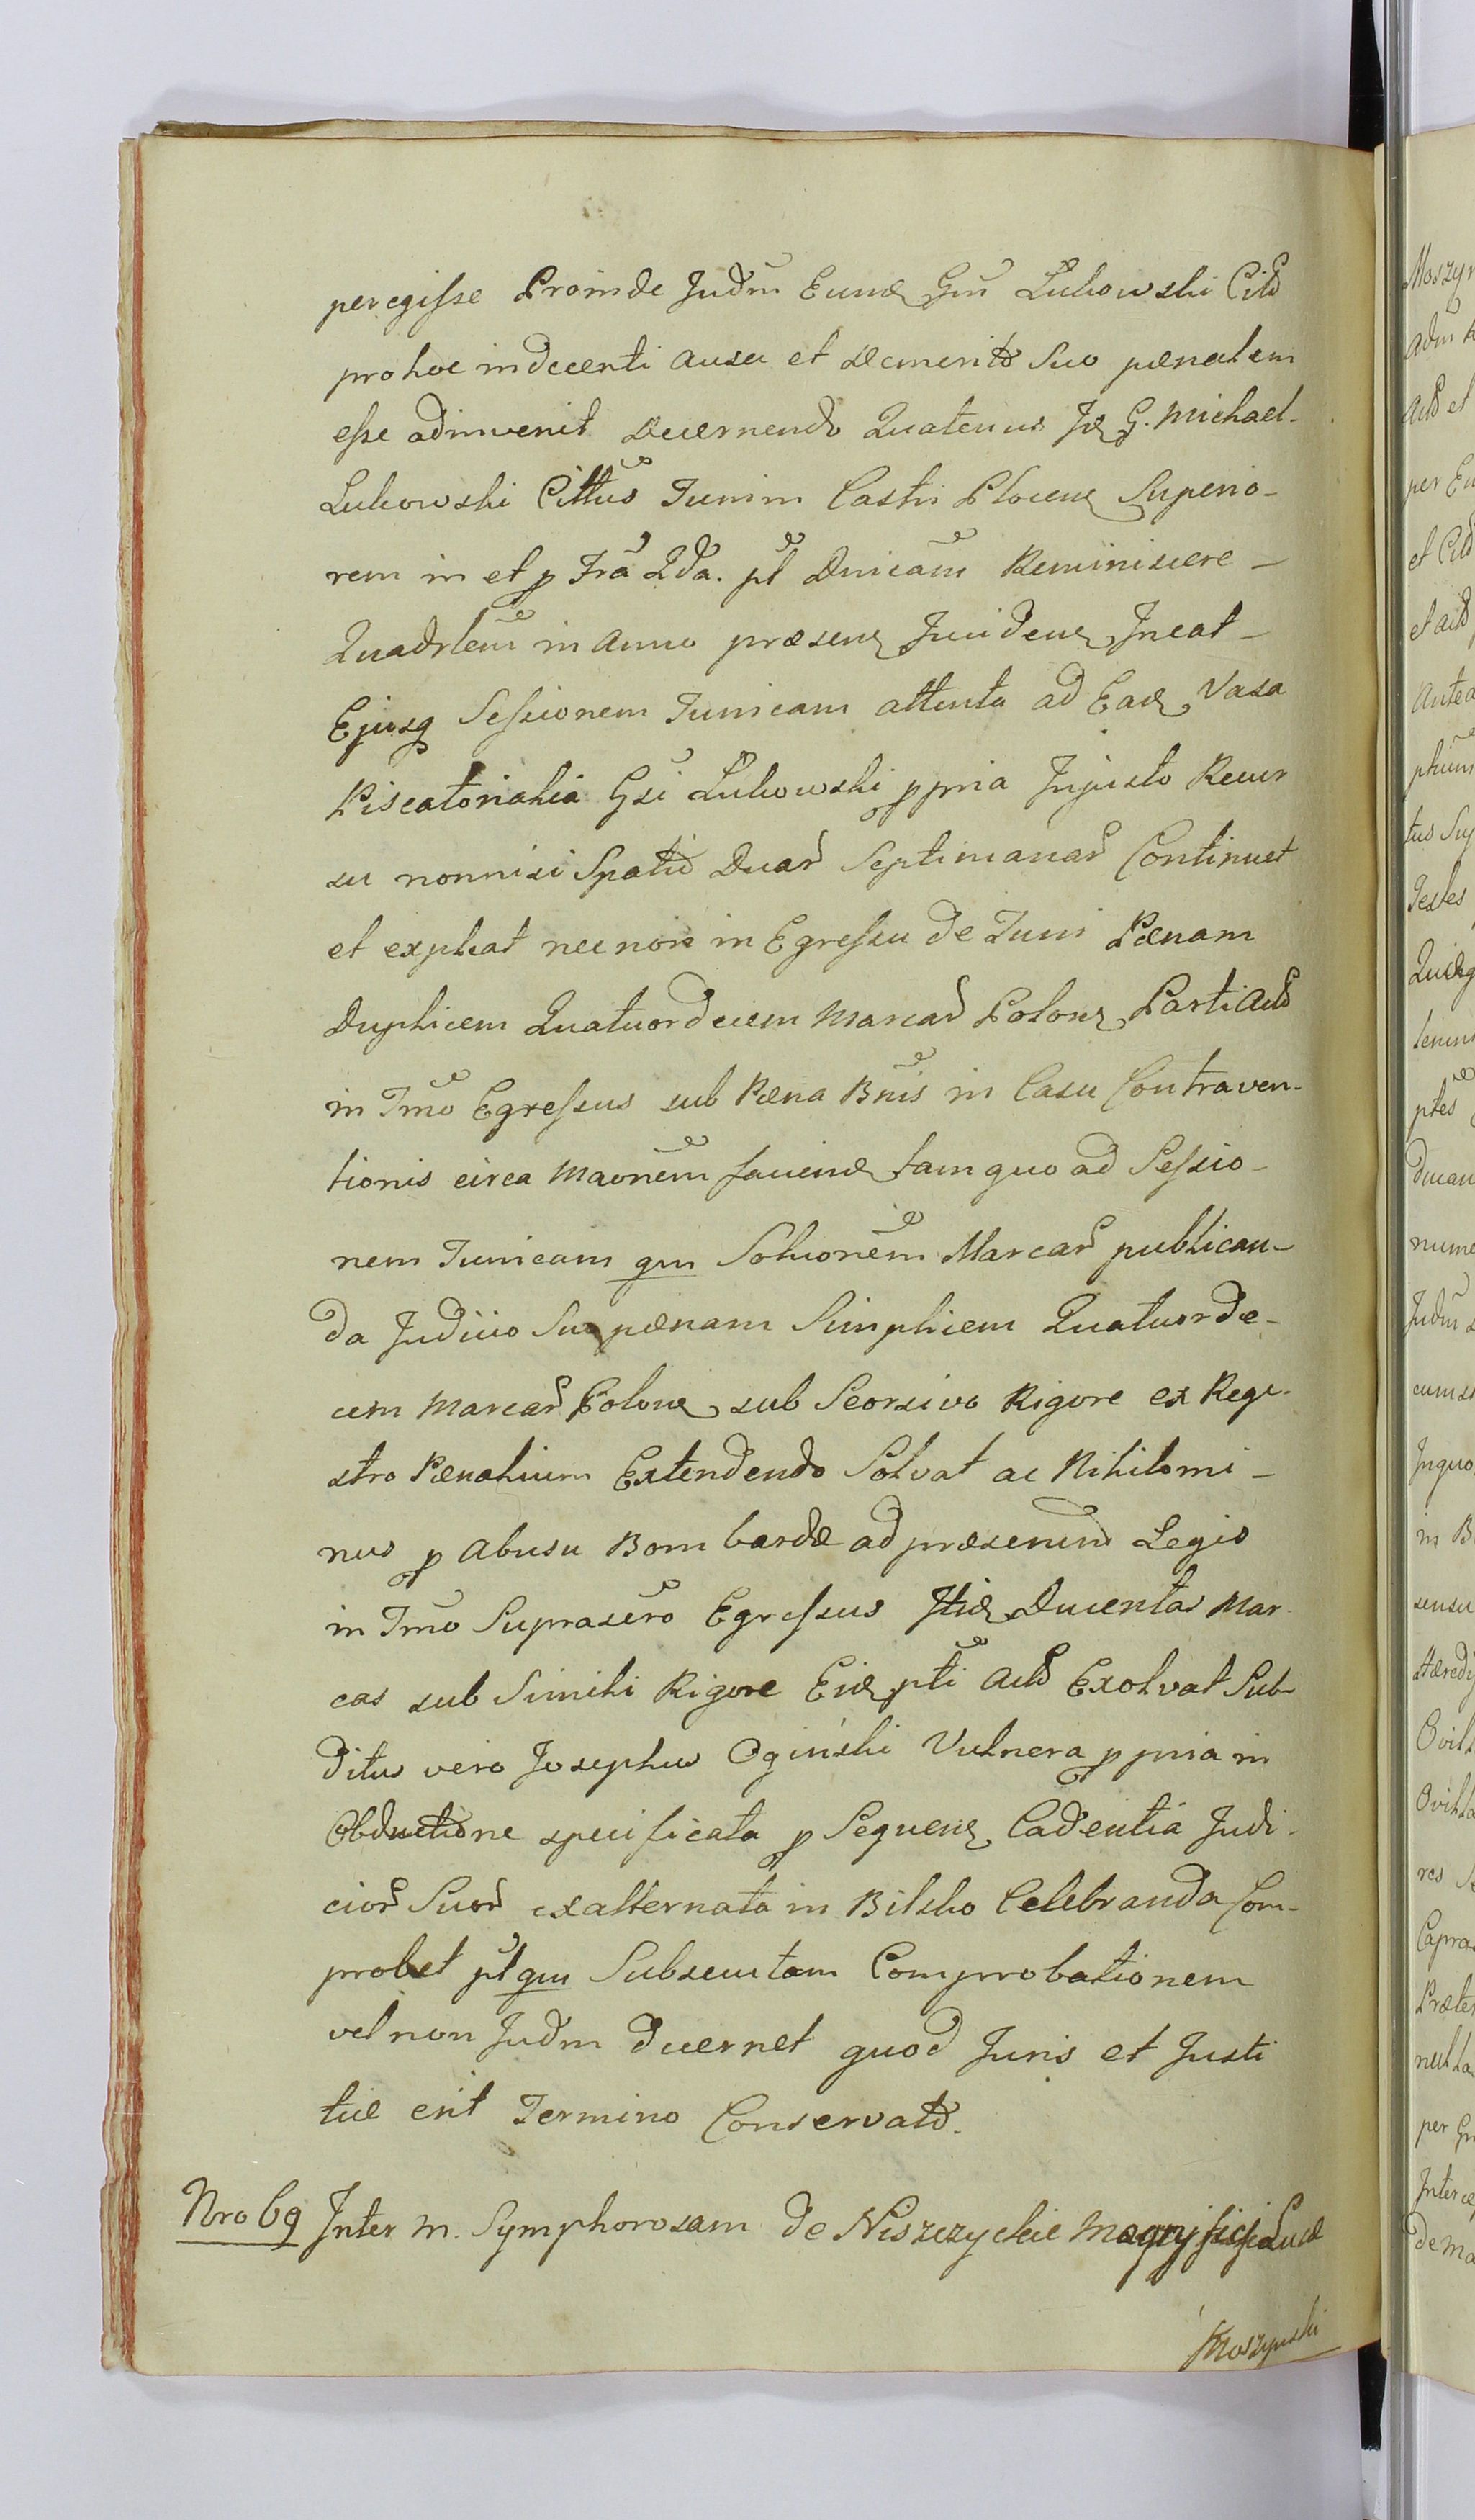 peregisse Proinde Judm Eund Gm Lukowski Citd
pro hoc indecenti ausu et demerito Suo pænalem
esse adinvenit decernendo Quatenus Id G. Michael
Lukowski Cittus Turrim Castri Plocens Superio-
rem in et p Fra 2da. pt Dnicam Reminiscere
Quadrlem in Anno præsens Incidens Ineat
Ejusq Sessionem Turricam attenta ad Ead Vasa
Piscatorialia Gsi Lukowski ppria Injusto Recur
su nonnisi Spatio Duar Septimanar Continuet
et expleat necnon in Egressu de Turri Pænam
Duplicem Quatuordecem Marcar Polons Parti Actd
in Tmo Egressus sub Pæna Bnis in Casu Contraven-
tionis circa Maonem faciend tam quo ad Sessio-
nem Turricam qm Soluonem Marcar publican-
da Judicio Suo pænam Simplicem Quatuorde-
cem Marcar Polons sub Seorsivo Rigore ex Regi-
stro Pænalium Extendendo Solvat ac Nihilomi-
nus p Abusu Bombardæ ad præsenend Legis
in Tmo Suprascro Egressus Itid Ducentas Mar
cas sub Simili Rigore Eid pti Actd Exolvat Sub-
ditus vero Josephus Oginski Vulnera ppria in
Obductione specificata p Sequens Cadentia Judi-
cior Suor exalternata in Bilsko Celebranda Com-
probet pt qm Subsecutam Comprobationem
vel non Judm Decernet quod Juris et Justi
tiæ erit Termino Conservato.
Nro 69 Inter M. Symphorosam de Niszczyckie Magnifici Lucæ
Moszynski